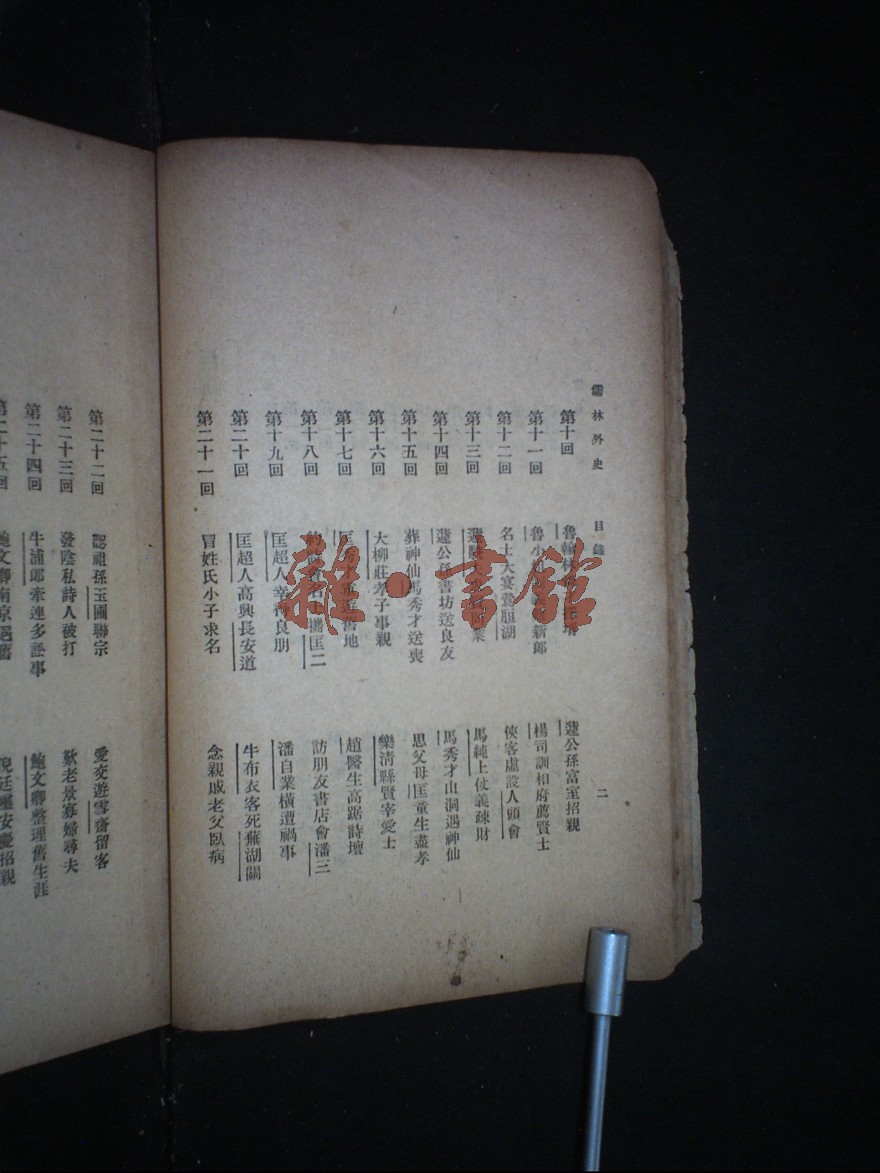 儒林外史 目錄 二
第十回 魯翰林 蘧公孫富室招親
第十一回 魯小 新郎 楊司訓相府薦賢士
第十二回 名士大宴鶯脰湖 俠客虛設人頭會
第十三回 蘧 業 馬純上仗義疎財
第十四回 蘧公孫書坊送良友 馬秀才山洞遇神仙
第十五回 葬神仙馬秀才送喪 思父母匡童生盡孝
第十六回 大柳莊孝子事親 樂清縣賢宰愛士
第十七回 匡 遊舊地 趙醫生高踞詩壇
第十八回 約詩會名士攜匡二 訪朋友書店會潘三
第十九回 匡超人幸得良朋 潘自業橫遭禍事
第二十回 匡超人高興長安道 牛布衣客死蕪湖關
第二十一回 冒姓氏小子求名 念親戚老父臥病
第二十二回 認祖孫玉圃聯宗 愛交遊雪齋留客
第二十三回 發陰私詩人被打 歎老景寡婦尋夫
第二十四回 牛浦郎牽連多訟事 鮑文卿整理舊生涯
第二十五回 鮑文卿南京遇舊 倪廷璽安慶招親
雜·書館